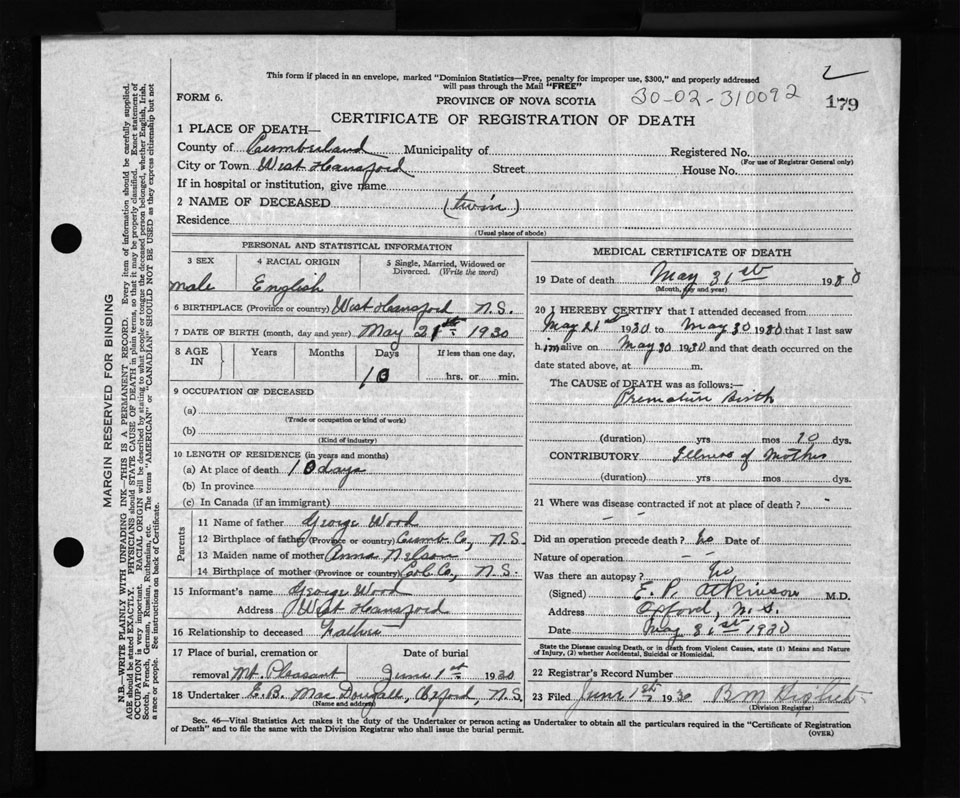 This form if placed in an envelope, marked "Dominion Statistics—Free, penalty for improper use, $300," and properly addressed
will pass through the Mail "FREE"
FORM 6.
PROVINCE OF NOVA SCOTIA
30-02-310092
179
CERTIFICATE OF REGISTRATION OF DEATH
1 PLACE OF DEATH—
County of Cumberland Municipality of Registered No.
(For use of Registrar General only)
City or Town West Hansford Street House No.
If in hospital or institution, give name
2 NAME OF DECEASED (twin)
Residence
(Usual place of abode)
PERSONAL AND STATISTICAL INFORMATION
3 SEX
male
4 RACIAL ORIGIN
English
5 Single, Married, Widowed or
Divorced. (Write the word)
6 BIRTHPLACE (Province or country) West Hansford N.S.
7 DATE OF BIRTH (month, day and year) May 21st 1930
8 AGE
IN
Years Months Days If less than one day,
10 hrs. or min.
9 OCCUPATION OF DECEASED
(a)
(Trade or occupation or kind of work)
(b)
(Kind of industry)
10 LENGTH OF RESIDENCE (in years and months)
(a) At place of death 10 days
(b) In province
(c) In Canada (if an immigrant)
Parents
11 Name of father George Wood
12 Birthplace of father (Province or country) Cumb. Co., N.S.
13 Maiden name of mother Anna Nelson
14 Birthplace of mother (Province or country) Col. Co., N.S.
15 Informant's name George Wood
Address West Hansford
16 Relationship to deceased Father
17 Place of burial, cremation or
removal Mt. Pleasant
Date of burial
June 1st 1930
18 Undertaker E.B. MacDougall, Oxford, N.S.
(Name and address)
MEDICAL CERTIFICATE OF DEATH
19 Date of death May 31st 1930
(Month, day and year)
20 I HEREBY CERTIFY that I attended deceased from
May 21st 1930 to May 30 1930 that I last saw
him alive on May 30 1930 and that death occurred on the
date stated above, at m.
The CAUSE of DEATH was as follows:—
Premature Birth
(duration) yrs mos 10 dys.
CONTRIBUTORY Illness of Mother
(duration) yrs mos dys.
21 Where was disease contracted if not at place of death? -
Did an operation precede death? No Date of
Nature of operation
Was there an autopsy? No
(Signed) E. P. Atkinson M.D.
Address Oxford, N.S.
Date May 31st 1930
State the Disease causing Death, or in death from Violent Causes, state (1) Means and Nature
of Injury, (2) whether Accidental, Suicidal or Homicidal.
22 Registrar's Record Number
23 Filed June 1st 1930 B M
(Division Registrar)
Sec. 46—Vital Statistics Act makes it the duty of the Undertaker or person acting as Undertaker to obtain all the particulars required in the "Certificate of Registration
of Death" and to file the same with the Division Registrar who shall issue the burial permit.
(OVER)
MARGIN RESERVED FOR BINDING
N.B.—WRITE PLAINLY WITH UNFADING INK—THIS IS A PERMANENT RECORD. Every item of information should be carefully supplied.
AGE should be stated EXACTLY. PHYSICIANS should STATE CAUSE OF DEATH in plain terms, so that it may be properly classified. Exact statement of
OCCUPATION is very important. RACIAL ORIGIN will be described by stating to what people or tongue the deceased person belonged, whether English, Irish,
Scotch, French, German, Russian, Ruthenian, etc. The terms "AMERICAN" or "CANADIAN" SHOULD NOT BE USED as they express citizenship but not
a race or people. See instructions on back of Certificate.